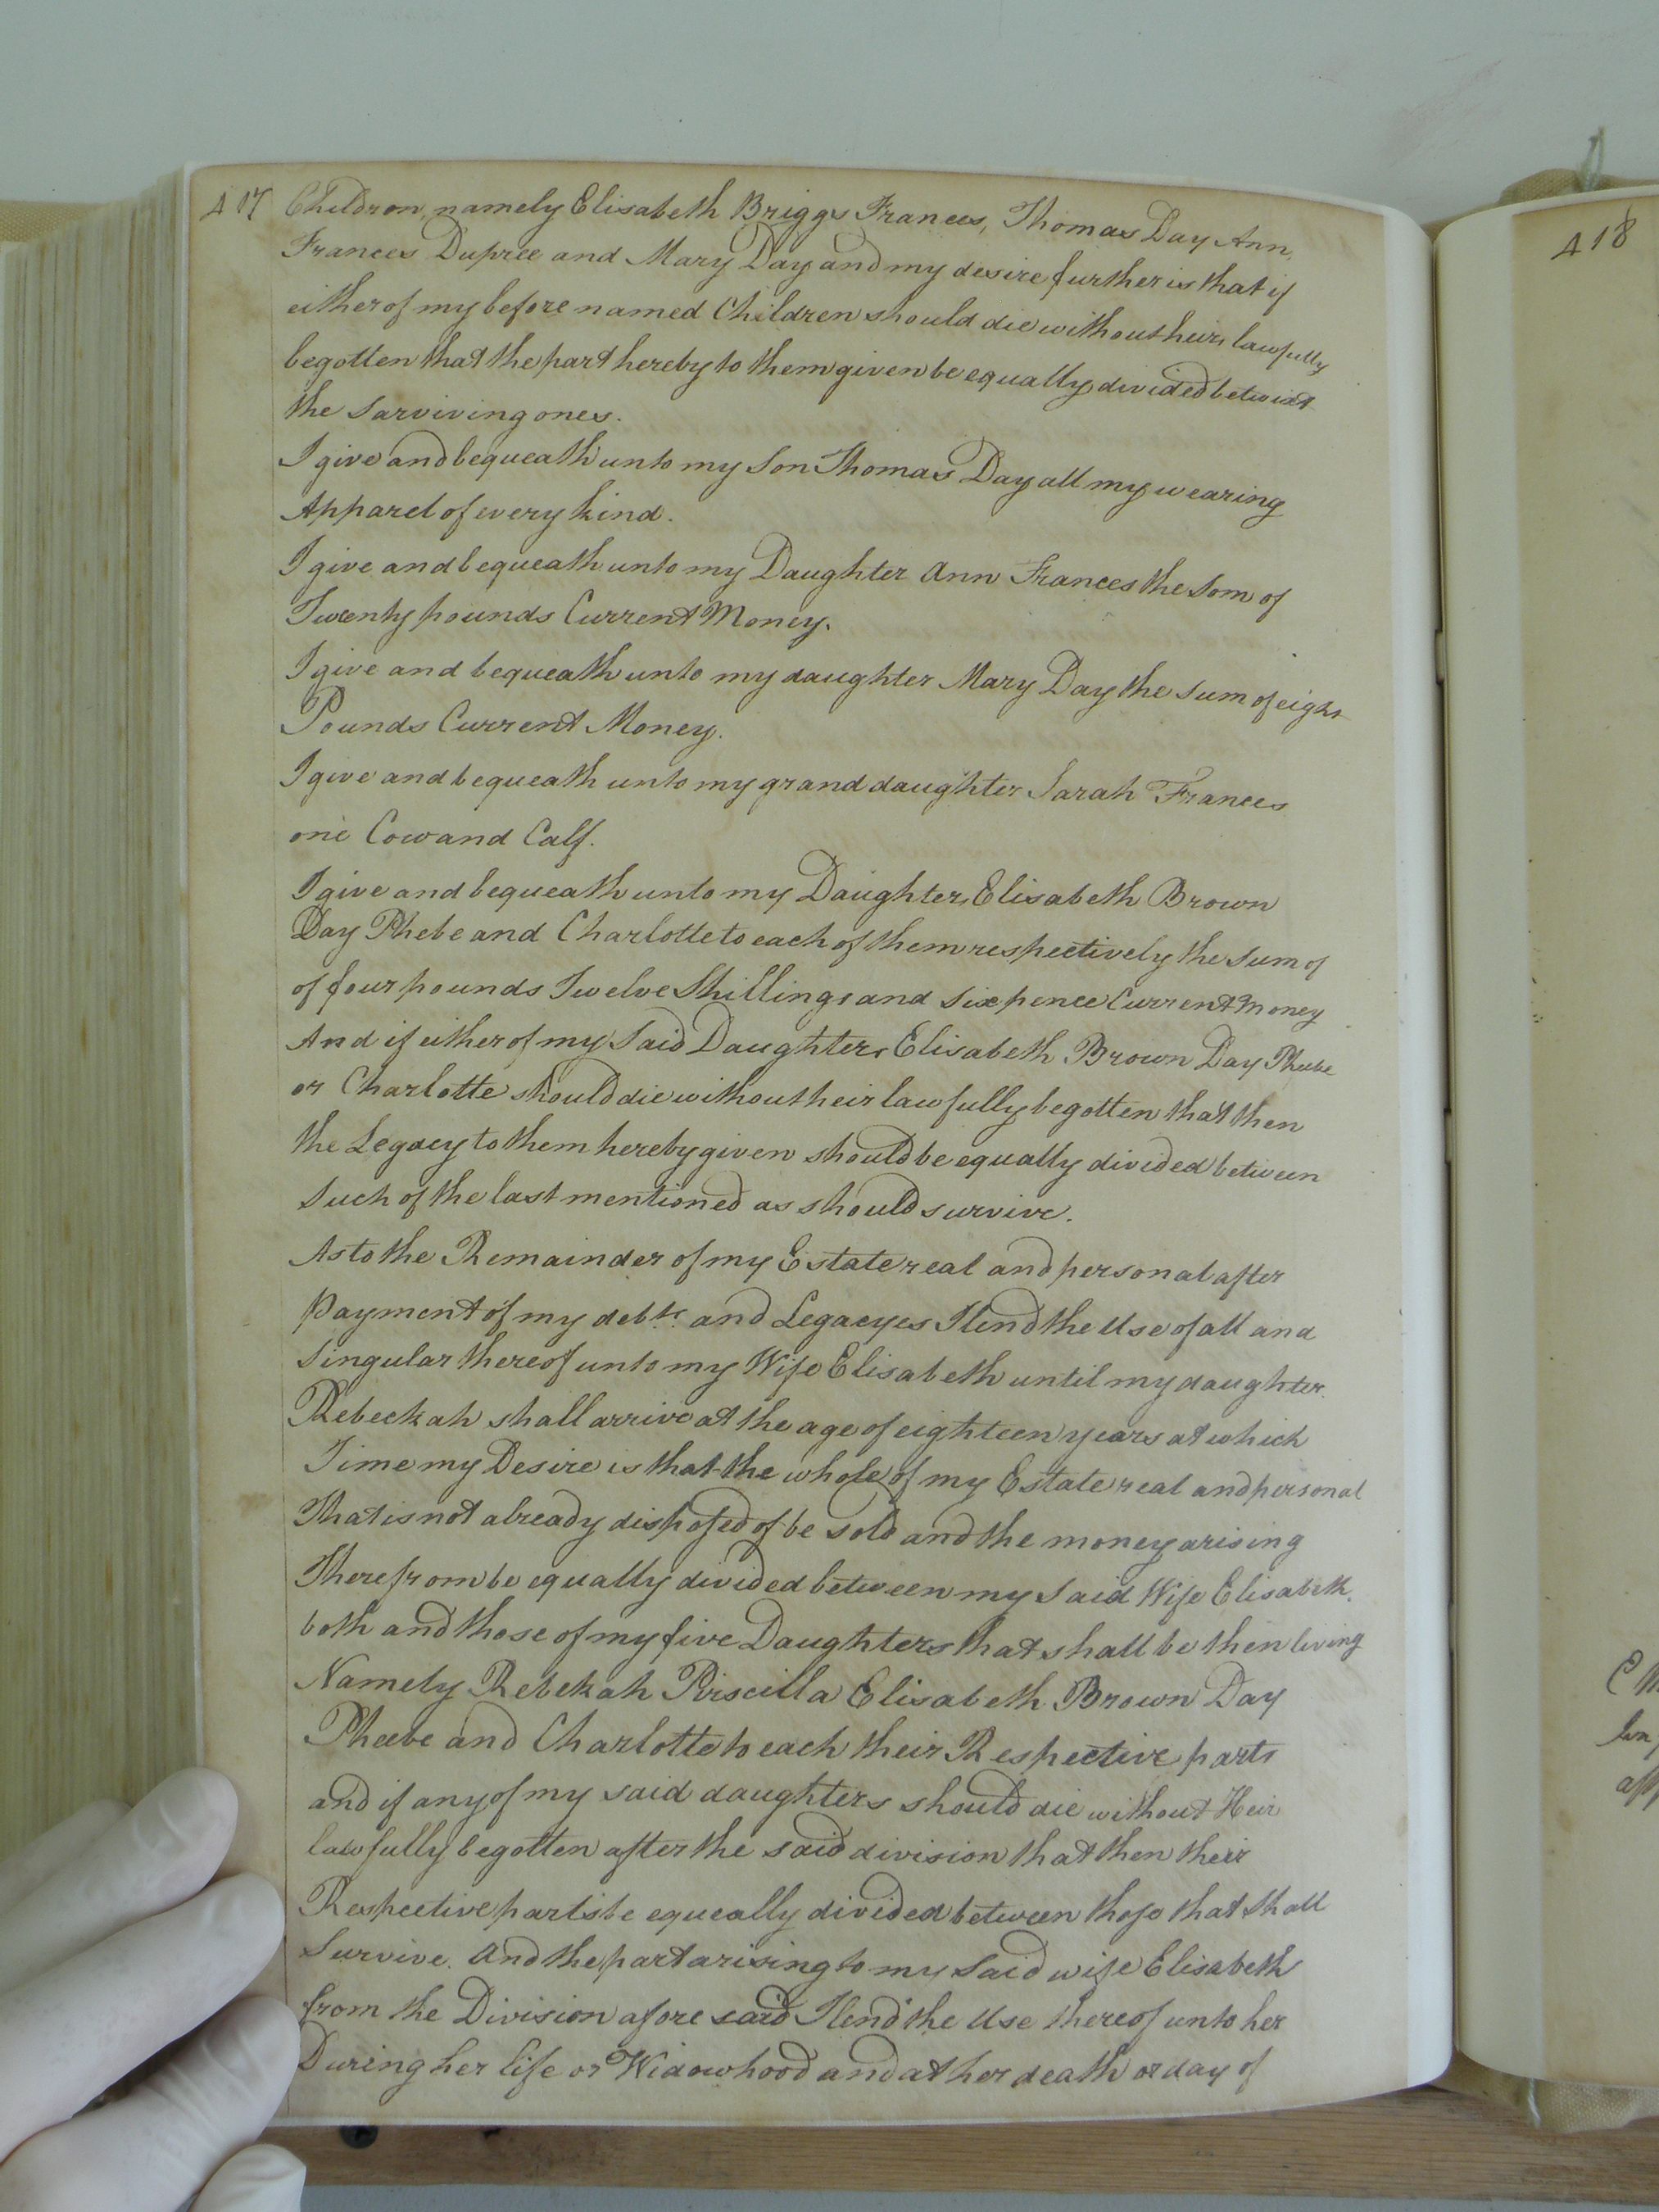 417
Children, namely Elisabeth Briggs Frances, Thomas Day Ann,
Frances Dupree and Mary Day and my desire further is that if
either of my before named Children should die without heirs lawfully
begotten that the part hereby to them given be equally divided betwixt
the Sarviving ones.
I give and bequeath unto my Son Thomas Day all my wearing
Apparel of every kind.
I give and bequeath unto my Daughter Ann Frances the Som of
Twenty pounds Current Money.
I give and bequeath unto my daughter Mary Day the Sum of eight
Pounds Current Money.
I give and bequeath unto my grand daughter Sarah Frances
one Cow and Calf.
I give and bequeath unto my Daughters Elisabeth Brown
Day Phebe and Charlotte to each of them respectively the Sum of
of four pounds Twelve Shillings and Six pence Current Money
And if either of my Said Daughters Elisabeth Brown Day Pheebe
or Charlotte should die without heir lawfully begotten that then
the Legacy to them hereby given should be equally divided between
Such of the last mentioned as should survive.
As to the Remainder of my Estate real and personal after
Payment of my debts and Legacyes I lend the Use of all and
Singular thereof unto my Wife Elisabeth until my daughter
Rebeckah shall arrive at the age of eighteen years at which
Time my Desire is that the whole of my Estate real and personal
That is not already disposed of be sold and the money arising
Therefrom be equally divided between my Said Wife Elisabeth
both and those of my five Daughters that shall be then living
Namely Rebekah Priscilla Elisabeth Brown Day
Pheebe and Charlotte to each their Respective parts
and if any of my said daughters should die without Heir
lawfully begotten after the said division that then their
Respective parts be equeally divided between those that shall
Survive. And the part arising to my Said wife Elisabeth
from the Division afore said I lend the Use thereof unto her
During her life or Widowhood and at her death or day of
418